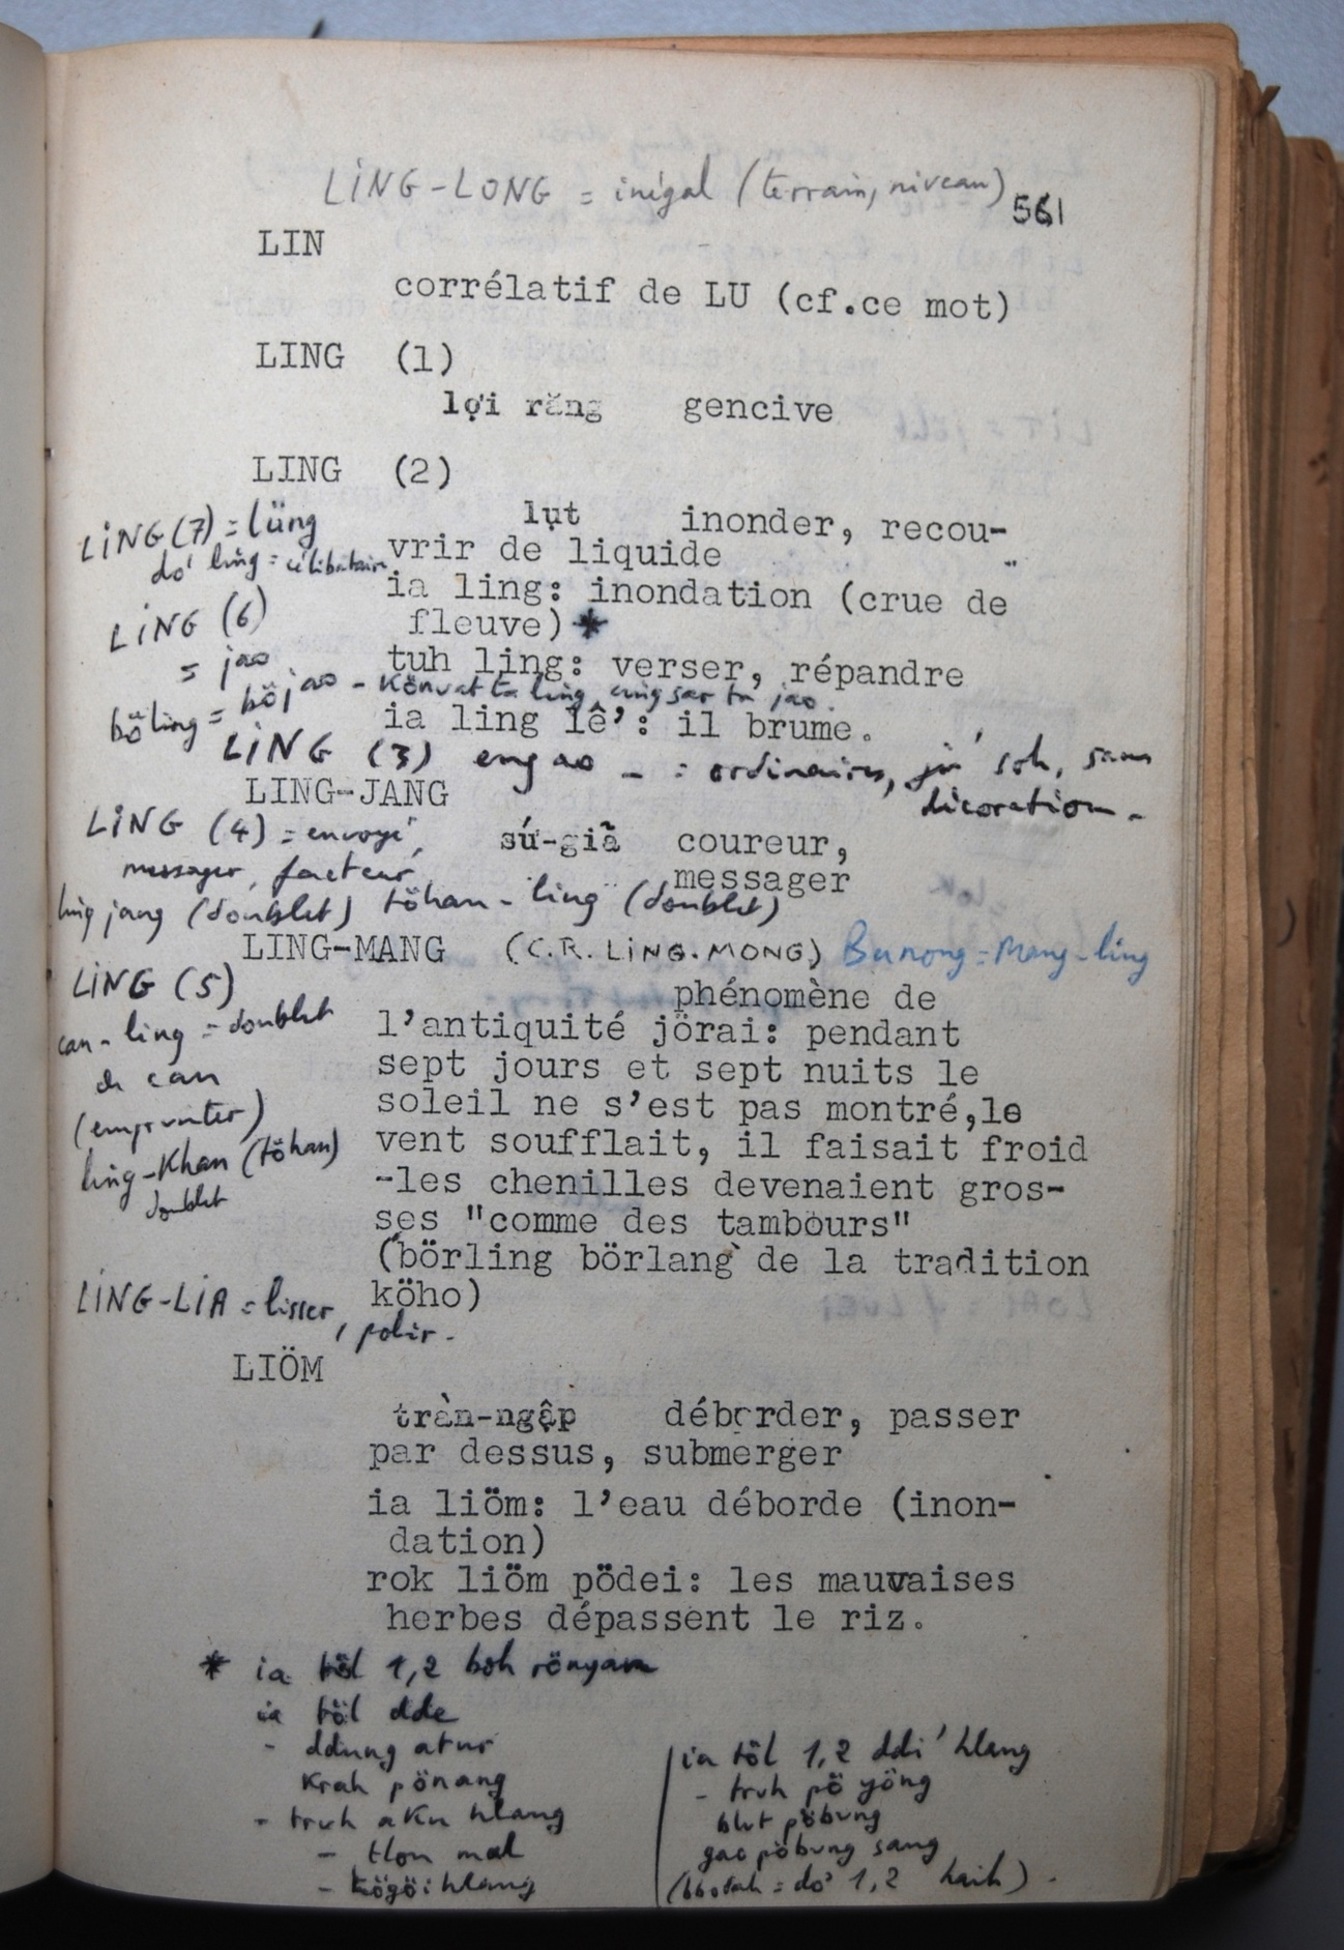 LiNG-LONG = inégal (terrain, niveau)
561
LIN
corrélatif de LU (cf.ce mot)
LING (1)
lợi răng gencive
LING (2)
lụt inonder, recou-
LiNG (7) = lüng
vrir de liquide
do' ling = célibataire
ia ling: inondation (crue de
fleuve) *
LiNG (6)
= jao
tuh ling: verser, répandre
böling = böjao - Könvat ta ling, ang sar ta jao.
ia ling lê': il brume.
LiNG (3) eng ao _ = ordinaires, soh, sans
décoration -
LING-JANG
LiNG (4) = envoyé,
sứ-giã coureur,
messager, facteur
messager
ling jang (doublet) töhan - ling (doublet)
LING-MANG (C.R. LiNG.MONG) Bunong = Mang-ling
LiNG (5)
phénomène de
can - ling = doublet
l'antiquité jörai: pendant
de can
sept jours et sept nuits le
(emprunter)
soleil ne s'est pas montré,le
ling-Khan (töhan)
vent soufflait, il faisait froid
doublet
-les chenilles devenaient gros-
ses "comme des tambours"
(börling börlang de la tradition
köho)
LiNG-LiA = lisser, polir -
LIÖM
tràn-ngập déborder, passer
par dessus, submerger
ia liöm: l'eau déborde (inon-
dation)
rok liöm pödei: les mauvaises
herbes dépassent le riz.
* ia töl 1,2 boh rönyan
ia töl dde
- ddung atur
Krah pönang
- truh aKu hlang
- tlon mal
- kögöi hlang
ia töl 1,2 ddi' hlang
- truh pö yöng
blut pöbung
gac pöbung sang
= do' 1,2 haih) .